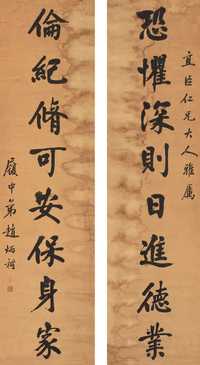 宜臣仁兄大人雅屬
恐懼深則日進德業
倫紀脩可安保身家
履中弟趙炳